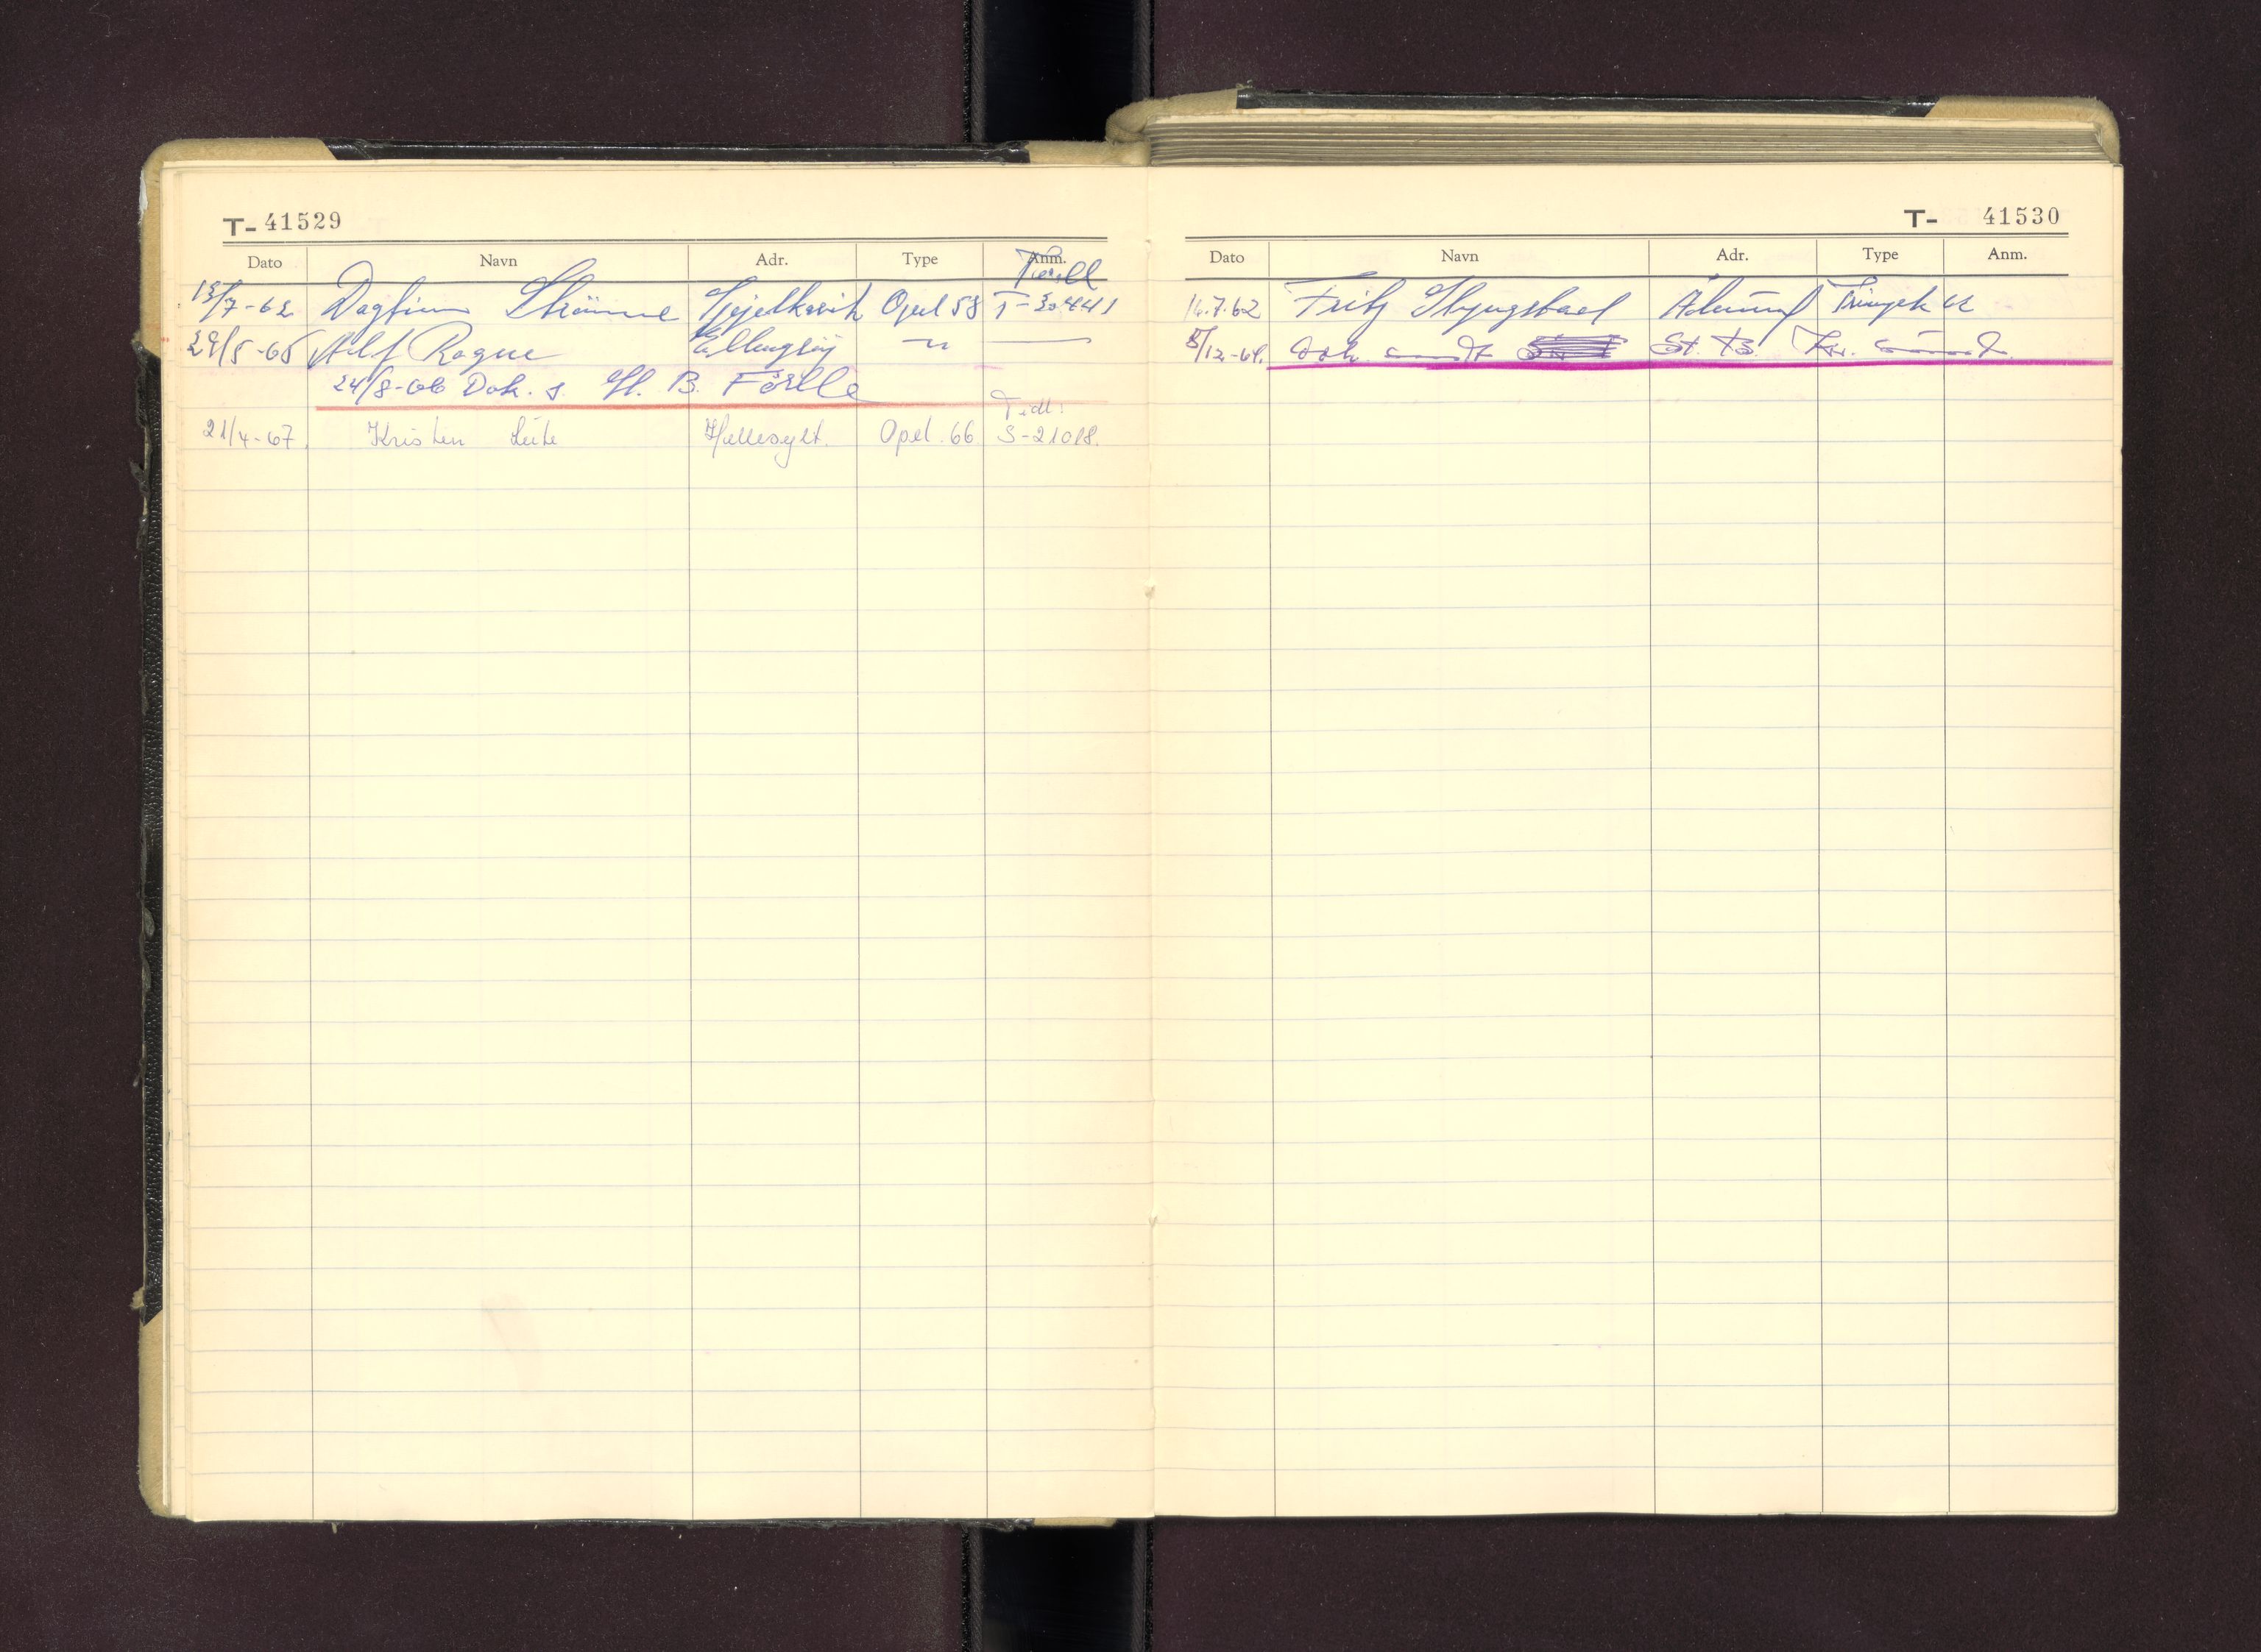 T- 41529
Dato Navn Adr. Type Anm.
13/7-62 Dagfinn Strømme Gjelkavik Opel 58 T-30441
29/5-65 Alf Rogne Ellingsøy — " —
24/8-66 Dok. s. St. B.
Tidl:
21/4-67. Kristen Leite Hellesylt. Opel. 66 S-21018.
T- 41530
Dato Navn Adr. Type Anm.
16.7.62 Fritz Ålesund 62
8/12-64. Dok. St. B.